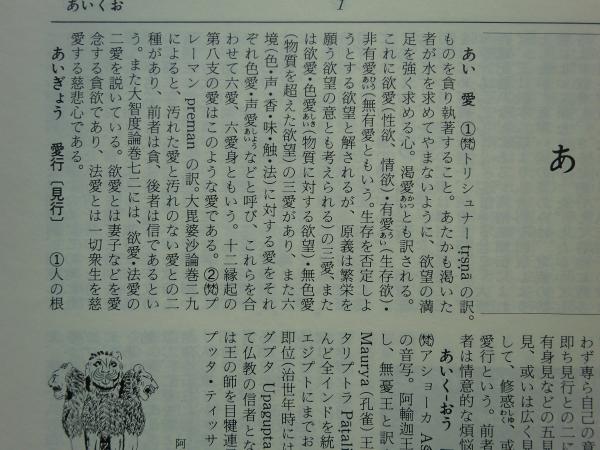 あいくお
1
あ
あい 愛 ①㊵トリシュナー tṛṣṇā の訳。
ものを貪り執著すること。あたかも渇いた
者が水を求めてやまないように、欲望の満
足を強く求める心。渇愛かつあいとも訳される。
これに欲愛(性欲、情欲)・有愛うあい(生存欲)・
非有愛ひうあい(無有愛ともいう。生存を否定しよ
うとする欲望と解されるが、原義は繁栄を
願う欲望の意とも考えられる)の三愛、また
は欲愛・色愛しきあい(物質に対する欲望)・無色愛
(物質を超えた欲望)の三愛があり、また六
境(色・声・香・味・触・法)に対する愛をそれ
ぞれ色愛・声愛しょうあいなどと呼び、これらを合
わせて六愛、六愛身ともいう。十二縁起の
第八支の愛はこのような愛である。②㊵プ
レーマン preman の訳。大毘婆沙論巻二九
によると、汚れた愛と汚れのない愛との二
種があり、前者は貪、後者は信であるとい
う。また大智度論巻七二には、欲愛・法愛の
二愛を説いている。欲愛とは妻子などを愛
念する貪欲であり、法愛とは一切衆生を慈
愛する慈悲心である。
あいぎょう 愛行〔見行〕 ①人の根
わず専ら自己の意
即ち見行との二に
有身見などの五見
見、或いは広く見
して、修惑しゅわく、或
愛行という。前者
者は情意的な煩悩
あいく-おう
(㊵アショーカ As
の音写。阿輸迦王
し、無憂王と訳
Maurya(孔雀)王
タリプトラ Pāṭali
んど全インドを統
エジプトにまでお
即位(治世年時には
グプタ Upagupta
て仏教の信者とな
は王の師を目犍連
プッタ・ティッサ
阿